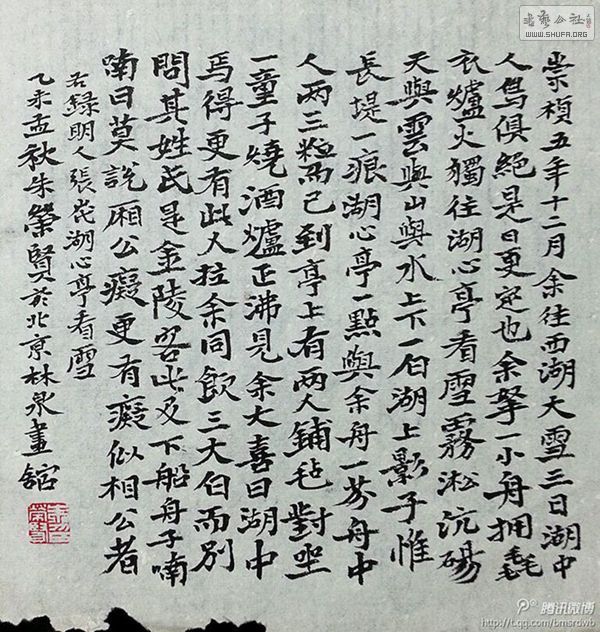 崇禎五年十二月余往西湖大雪三日湖中
人鳥俱絕是日更定也余拏一小舟拥毳
衣爐火獨往湖心亭看雪霧淞沆碭
天與雲與山與水上下一白湖上影子惟
長堤一痕湖心亭一點與余舟一芥舟中
人两三粒而已到亭上有两人鋪毡對坐
一童子燒酒爐正沸見余大喜曰湖中
焉得更有此人拉余同飲三大白而別
問其姓氏是金陵客此及下船舟子喃
喃曰莫說厢公癡更有癡似相公者
右錄明人張岱湖心亭看雪
乙未孟秋朱榮賢於北京林泉畫舘
WWW.SHUFA.ORG
腾讯微博
http://t.qq.com/bmsrdwb